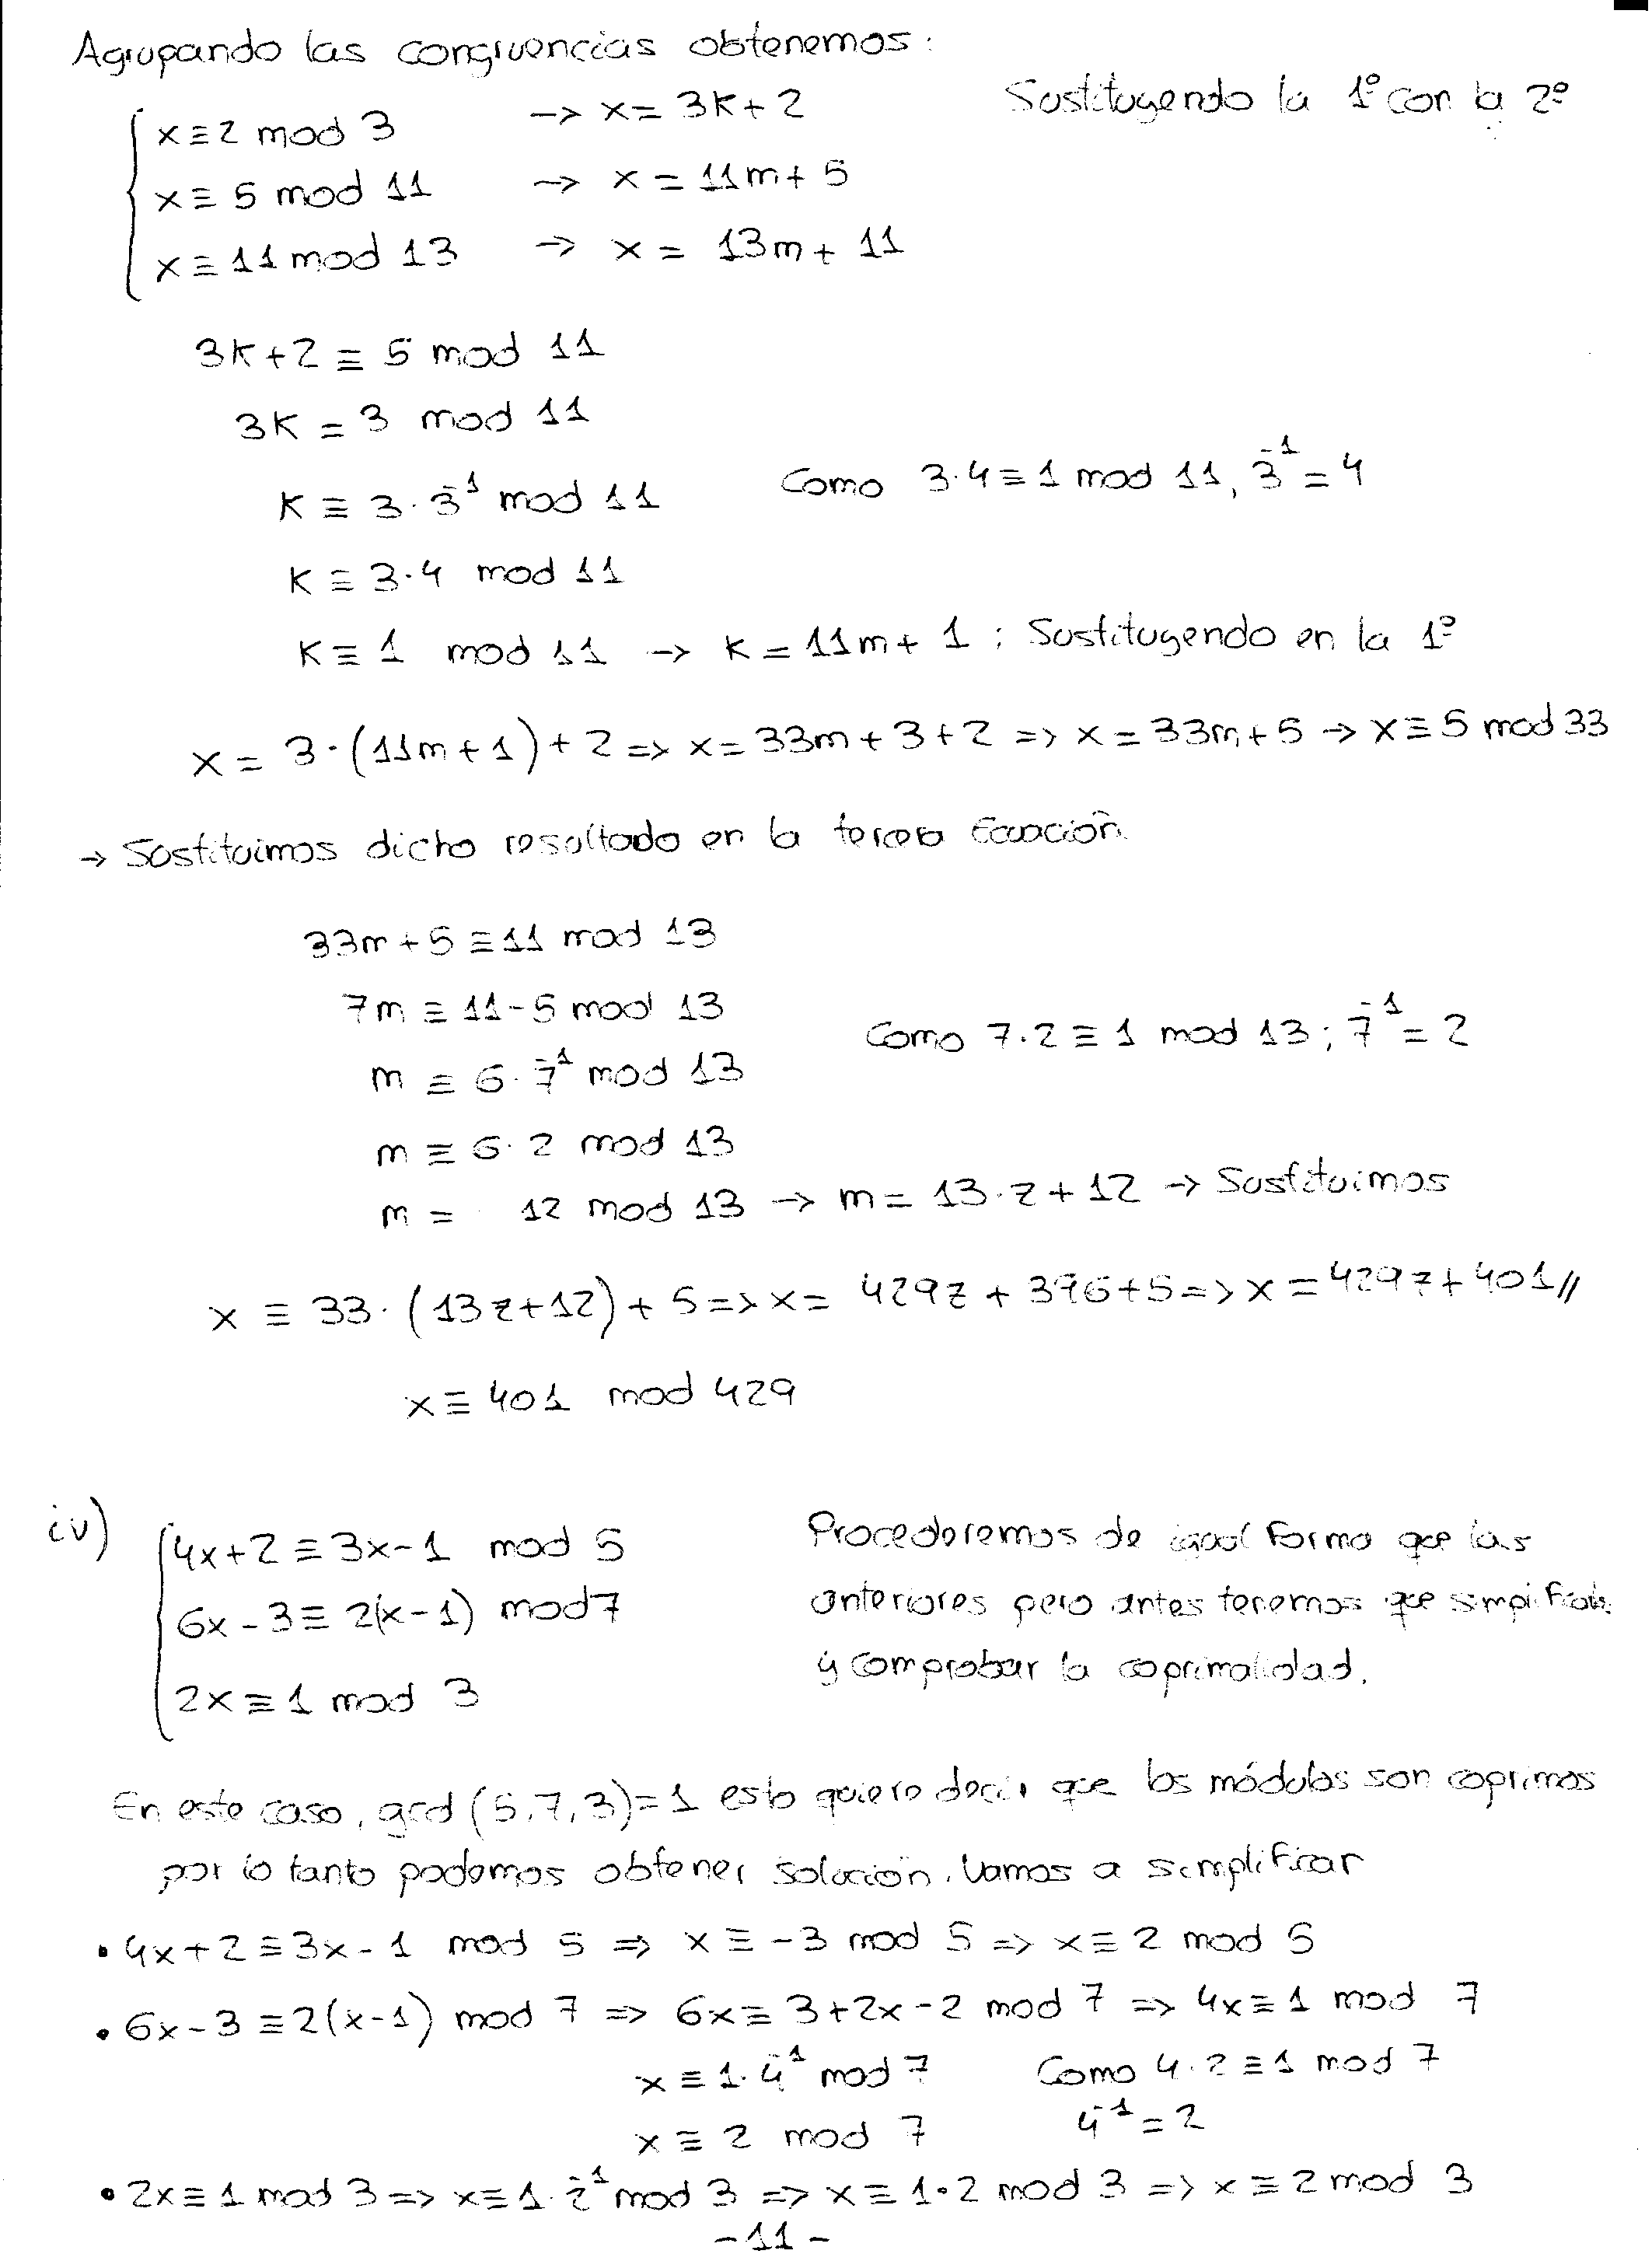 Agrupando las congruencias obtenemos:
Sustituyendo la 1º con la 2º
x≡2 mod 3 -> x= 3K+2
x≡ 5 mod 11 -> x = 11m+ 5
x≡11 mod 13 -> x = 13m+ 11
3K+2 ≡ 5 mod 11
3K = 3 mod 11
K ≡ 3·3⁻¹ mod 11 Como 3·4≡1 mod 11, 3⁻¹=4
K ≡ 3·4 mod 11
K≡ 1 mod 11 -> K = 11m+ 1 ; Sustituyendo en la 1º
x = 3·(11m+1)+2 => x=33m+3+2 => x=33m+5 -> x≡5 mod 33
-> Sustituimos dicho resultado en la tercera Ecuación.
33m+5 ≡11 mod 13
7m ≡ 11-5 mod 13
Como 7·2≡1 mod 13; 7⁻¹=2
m ≡ 6·7⁻¹ mod 13
m ≡ 6·2 mod 13
m = 12 mod 13 -> m= 13·z+12 -> Sustituimos
x ≡ 33·(13z+12)+5=>x= 429z+396+5=>x=429z+401//
x≡ 401 mod 429
iv) 4x+2≡3x-1 mod 5 Procederemos de igual forma que las
6x-3≡2(x-1) mod 7 anteriores pero antes tenemos que simplificar
2x≡1 mod 3 y comprobar la coprimalidad.
En este caso, gcd(5,7,3)=1 esto quiere decir que los módulos son coprimos
por lo tanto podemos obtener solución. Vamos a simplificar
• 4x+2≡3x-1 mod 5 => x≡-3 mod 5 => x≡2 mod 5
• 6x-3≡2(x-1) mod 7 => 6x≡3+2x-2 mod 7 => 4x≡1 mod 7
x≡1·4⁻¹ mod 7 Como 4·2≡1 mod 7
x≡2 mod 7 4⁻¹=2
• 2x≡1 mod 3=> x≡1·2⁻¹ mod 3 => x≡1·2 mod 3 => x≡2 mod 3
-11-